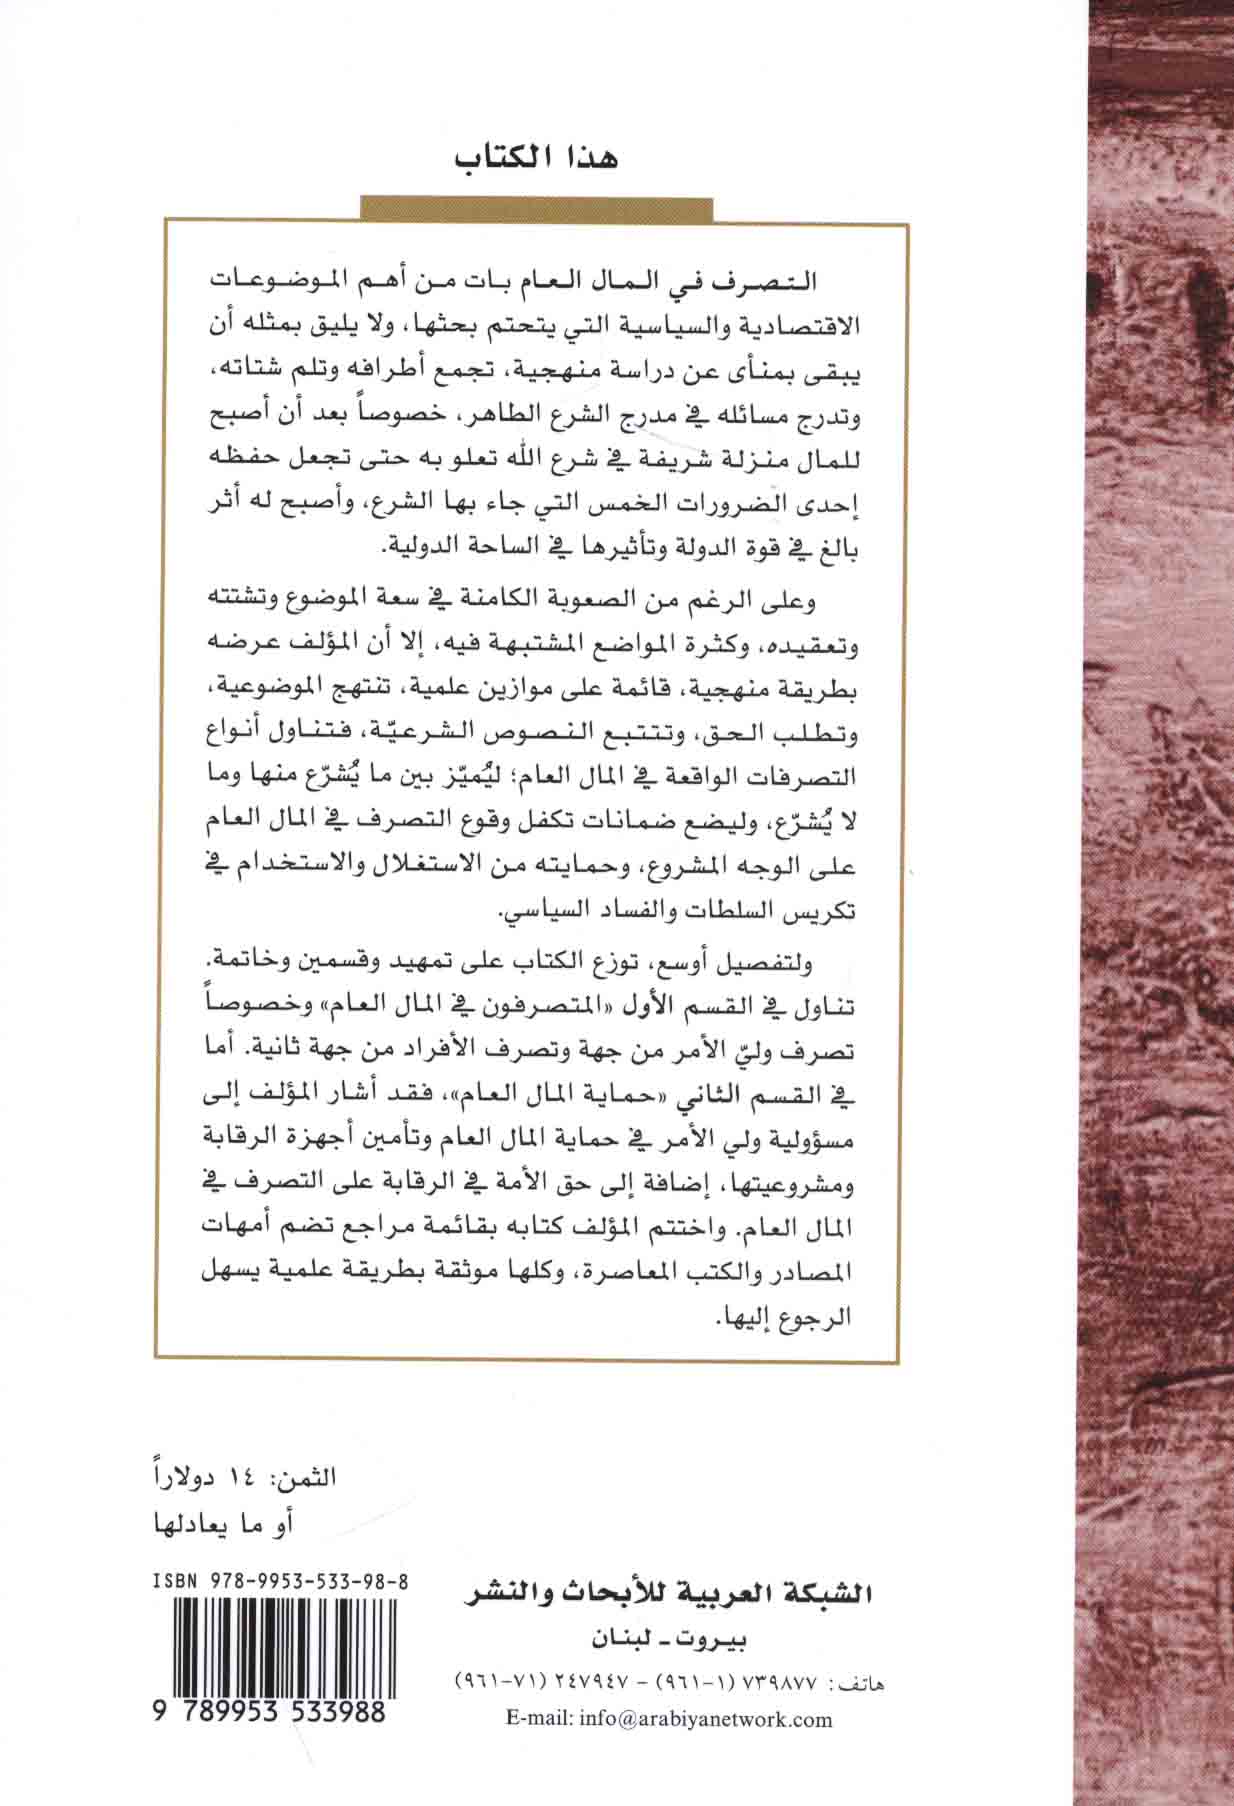 هذا الكتاب
التصرف في المال العام بات من أهم الموضوعات
الاقتصادية والسياسية التي يتحتم بحثها، ولا يليق بمثله أن
يبقى بمنأى عن دراسة منهجية، تجمع أطرافه وتلم شتاته،
وتدرج مسائله في مدرج الشرع الطاهر، خصوصاً بعد أن أصبح
للمال منزلة شريفة في شرع الله تعلو به حتى تجعل حفظه
إحدى الضرورات الخمس التي جاء بها الشرع، وأصبح له أثر
بالغ في قوة الدولة وتأثيرها في الساحة الدولية.
وعلى الرغم من الصعوبة الكامنة في سعة الموضوع وتشتته
وتعقيده، وكثرة المواضع المشتبهة فيه، إلا أن المؤلف عرضه
بطريقة منهجية، قائمة على موازين علمية، تنتهج الموضوعية،
وتطلب الحق، وتتتبع النصوص الشرعيّة، فتناول أنواع
التصرفات الواقعة في المال العام؛ ليُميّز بين ما يُشرّع منها وما
لا يُشرّع، وليضع ضمانات تكفل وقوع التصرف في المال العام
على الوجه المشروع، وحمايته من الاستغلال والاستخدام في
تكريس السلطات والفساد السياسي.
ولتفصيل أوسع، توزع الكتاب على تمهيد وقسمين وخاتمة.
تناول في القسم الأول «المتصرفون في المال العام» وخصوصاً
تصرف وليّ الأمر من جهة وتصرف الأفراد من جهة ثانية. أما
في القسم الثاني «حماية المال العام»، فقد أشار المؤلف إلى
مسؤولية ولي الأمر في حماية المال العام وتأمين أجهزة الرقابة
ومشروعيتها، إضافة إلى حق الأمة في الرقابة على التصرف في
المال العام. واختتم المؤلف كتابه بقائمة مراجع تضم أمهات
المصادر والكتب المعاصرة، وكلها موثقة بطريقة علمية يسهل
الرجوع إليها.
الثمن: ١٤ دولاراً
أو ما يعادلها
ISBN 978-9953-533-98-8
9 789953 533988
الشبكة العربية للأبحاث والنشر
بيروت - لبنان
هاتف: ٧٣٩٨٧٧ (١-٩٦١) - ٢٤٧٩٤٧ (٧١-٩٦١)
E-mail: info@arabiyanetwork.com